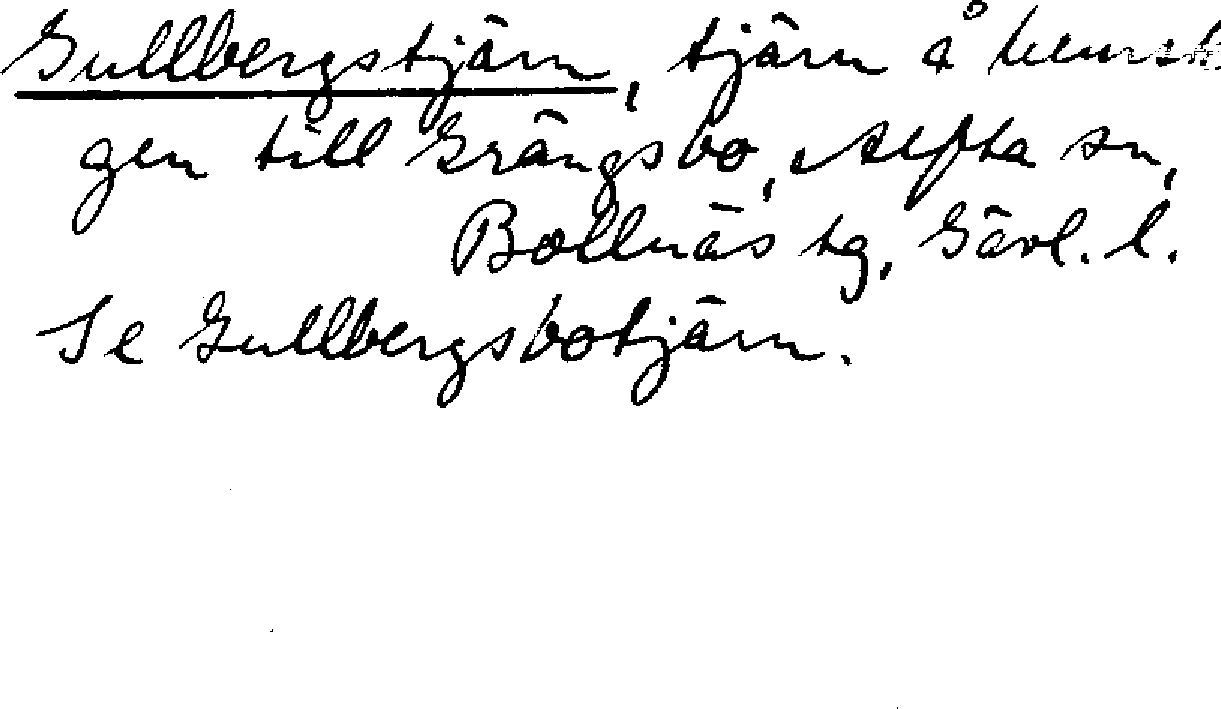 Gullbergstjärn, tjärn å hemsko
gen till Grängsbo, Alfta sn,
Bollnäs tg, Gävl. l.
Se Gullbergsbotjärn.